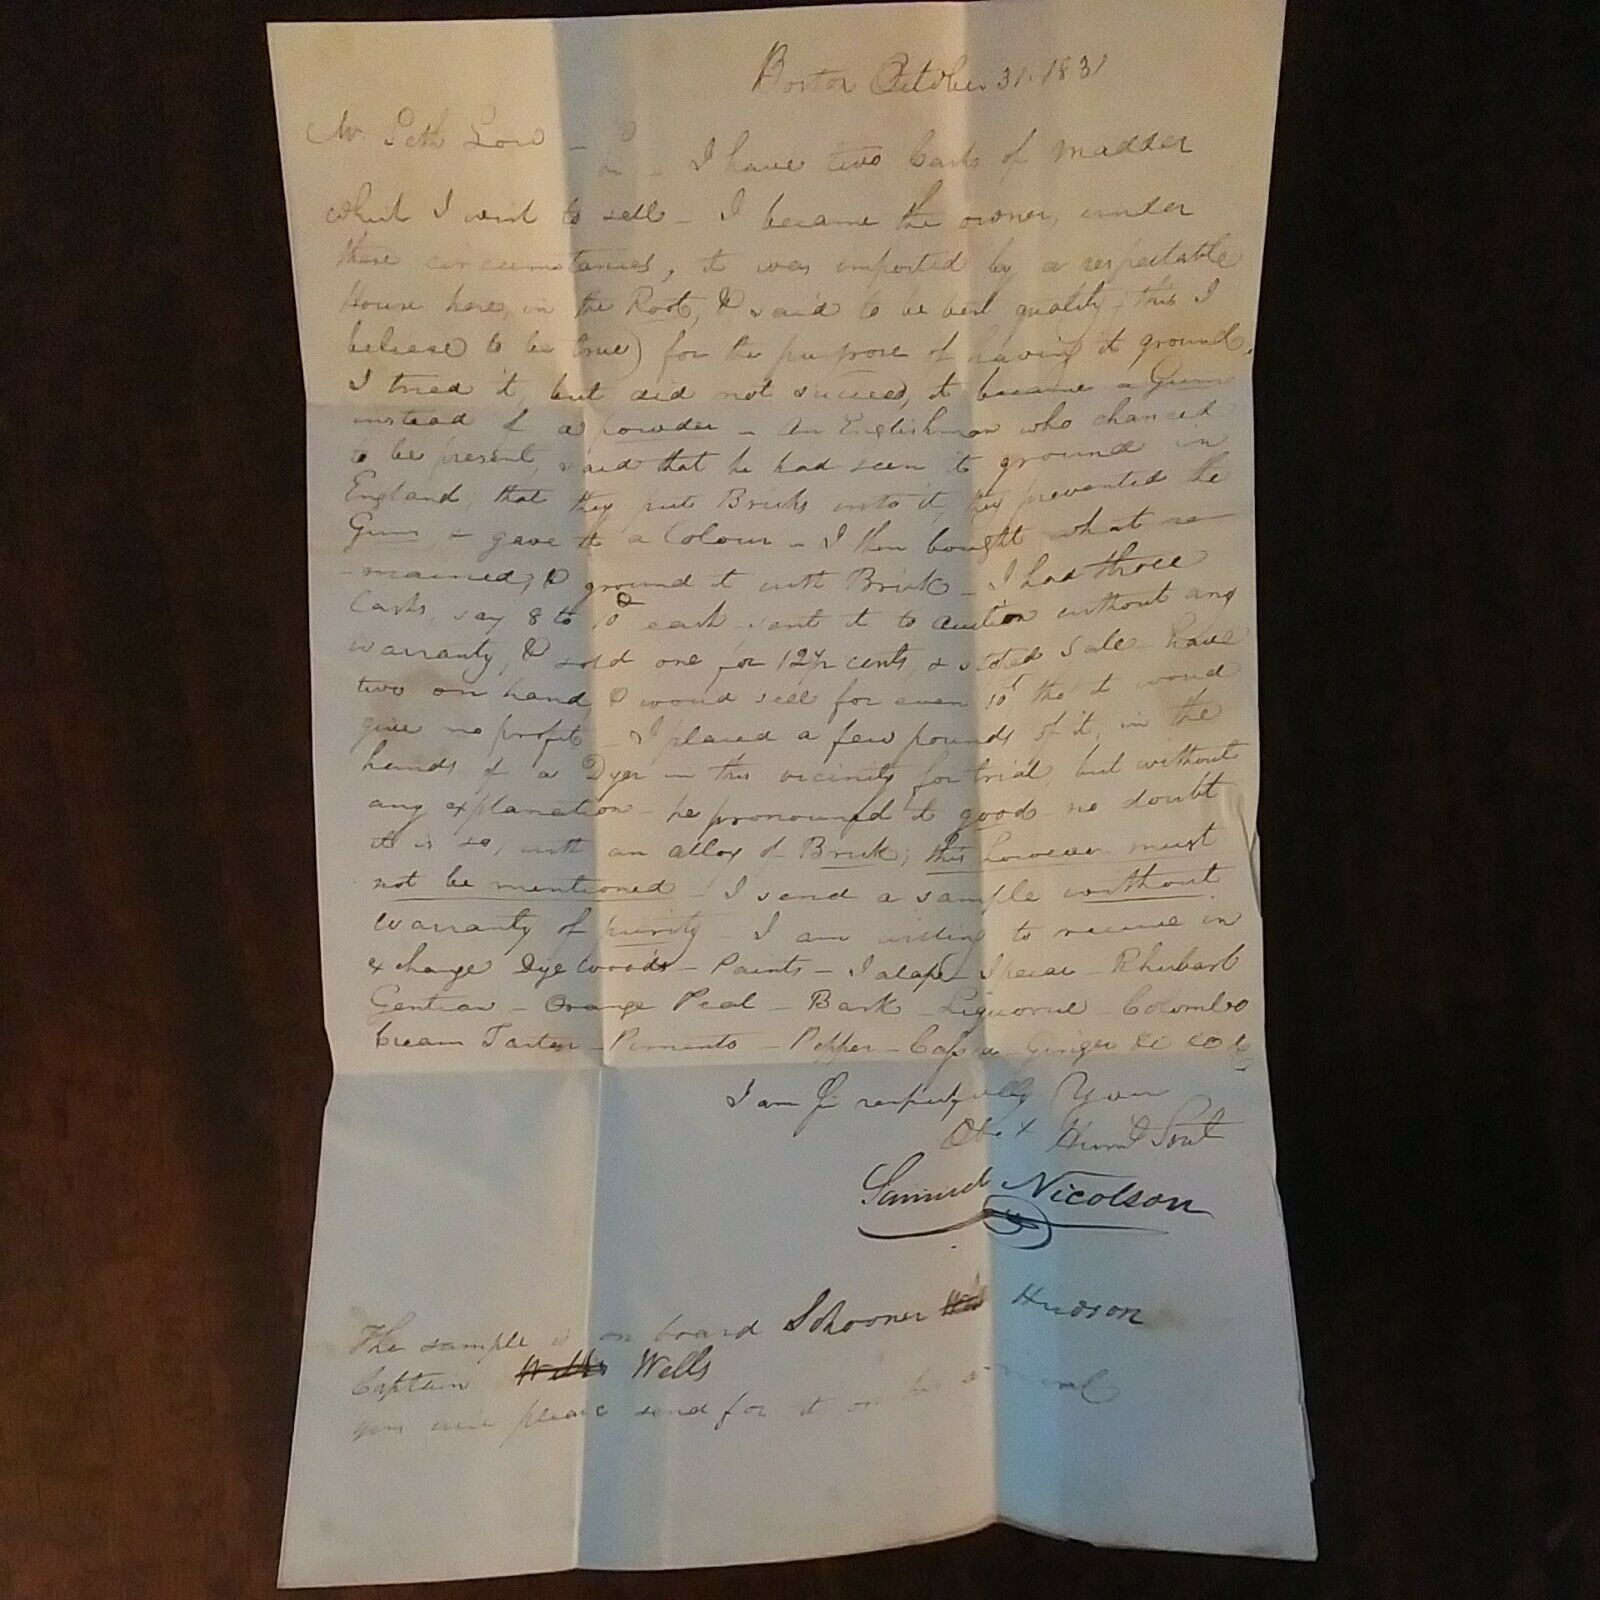 Boston October 31. 1831
Mr Seth Low - Sir - I have two Casks of Madder
which I wish to sell - I became the owner, under
these circumstances, it was imported by a respectable
House here, in the Root, & said to be best quality (this I
believe to be true) for the purpose of having it ground.
I tried it, but did not succeed, it became a Gum
instead of a powder - An Englishman who chanced
to be present, said that he had seen it ground in
England, that they put Bricks into it, they prevented the
Gum, & gave it a Colour - I then bought what re
-mained, & ground it with Brick - I had three
Casks, say 8 to 10 each sent it to auction without any
warranty, & sold one for 12 1/2 cents, & stoped sale - have
two on hand, & would sell for even 10 tho' it would
give no profit - I placed a few pounds of it, in the
hands of a Dyer in this vicinity for trial, but without
any explanation - he pronounced it good no doubt
it is so, with an alloy of Brick; this however must
not be mentioned - I send a sample without
warranty of purity - I am willing to receive in
exchange Dye Woods - Paints - Jalap - Ipecac - Rhubarb
Gentian - Orange Peal - Bark - Liquorice - Colombo
Cream Tarter - Pimento - Pepper - Cassia - Ginger &c &c &c
I am Sir respectfully Your
Obt & Huml Servt
Samuel Nicolson
The sample is on board Schooner Hudson
Captain Wells
you will please send for it on her arrival